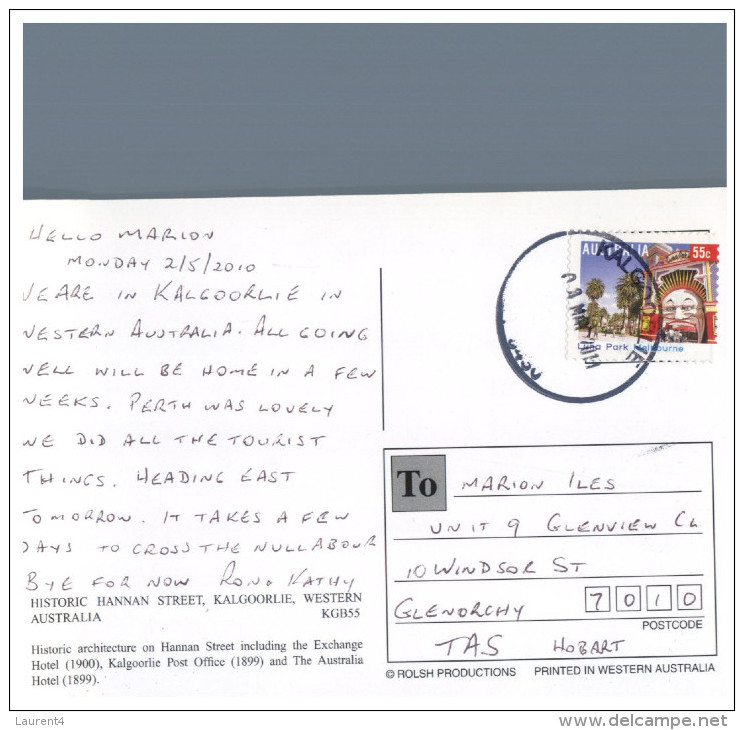 HELLO MARION
MONDAY 2/5/2010
WE ARE IN KALGOORLIE IN
WESTERN AUSTRALIA. ALL GOING
WELL WILL BE HOME IN A FEW
WEEKS. PERTH WAS LOVELY
WE DID ALL THE TOURIST
THINGS. HEADING EAST
TOMORROW. IT TAKES A FEW
DAYS TO CROSS THE NULLABOUR
BYE FOR NOW RON & KATHY
HISTORIC HANNAN STREET, KALGOORLIE, WESTERN
AUSTRALIA KGB55
Historic architecture on Hannan Street including the Exchange
Hotel (1900), Kalgoorlie Post Office (1899) and The Australia
Hotel (1899).
AUSTRALIA 55c
Luna Park Melbourne
KALGOORLIE
6430
To MARION ILES
UNIT 9 GLENVIEW CL
10 WINDSOR ST
GLENORCHY 7010
POSTCODE
TAS HOBART
© ROLSH PRODUCTIONS PRINTED IN WESTERN AUSTRALIA
Laurent4
delcampe.net